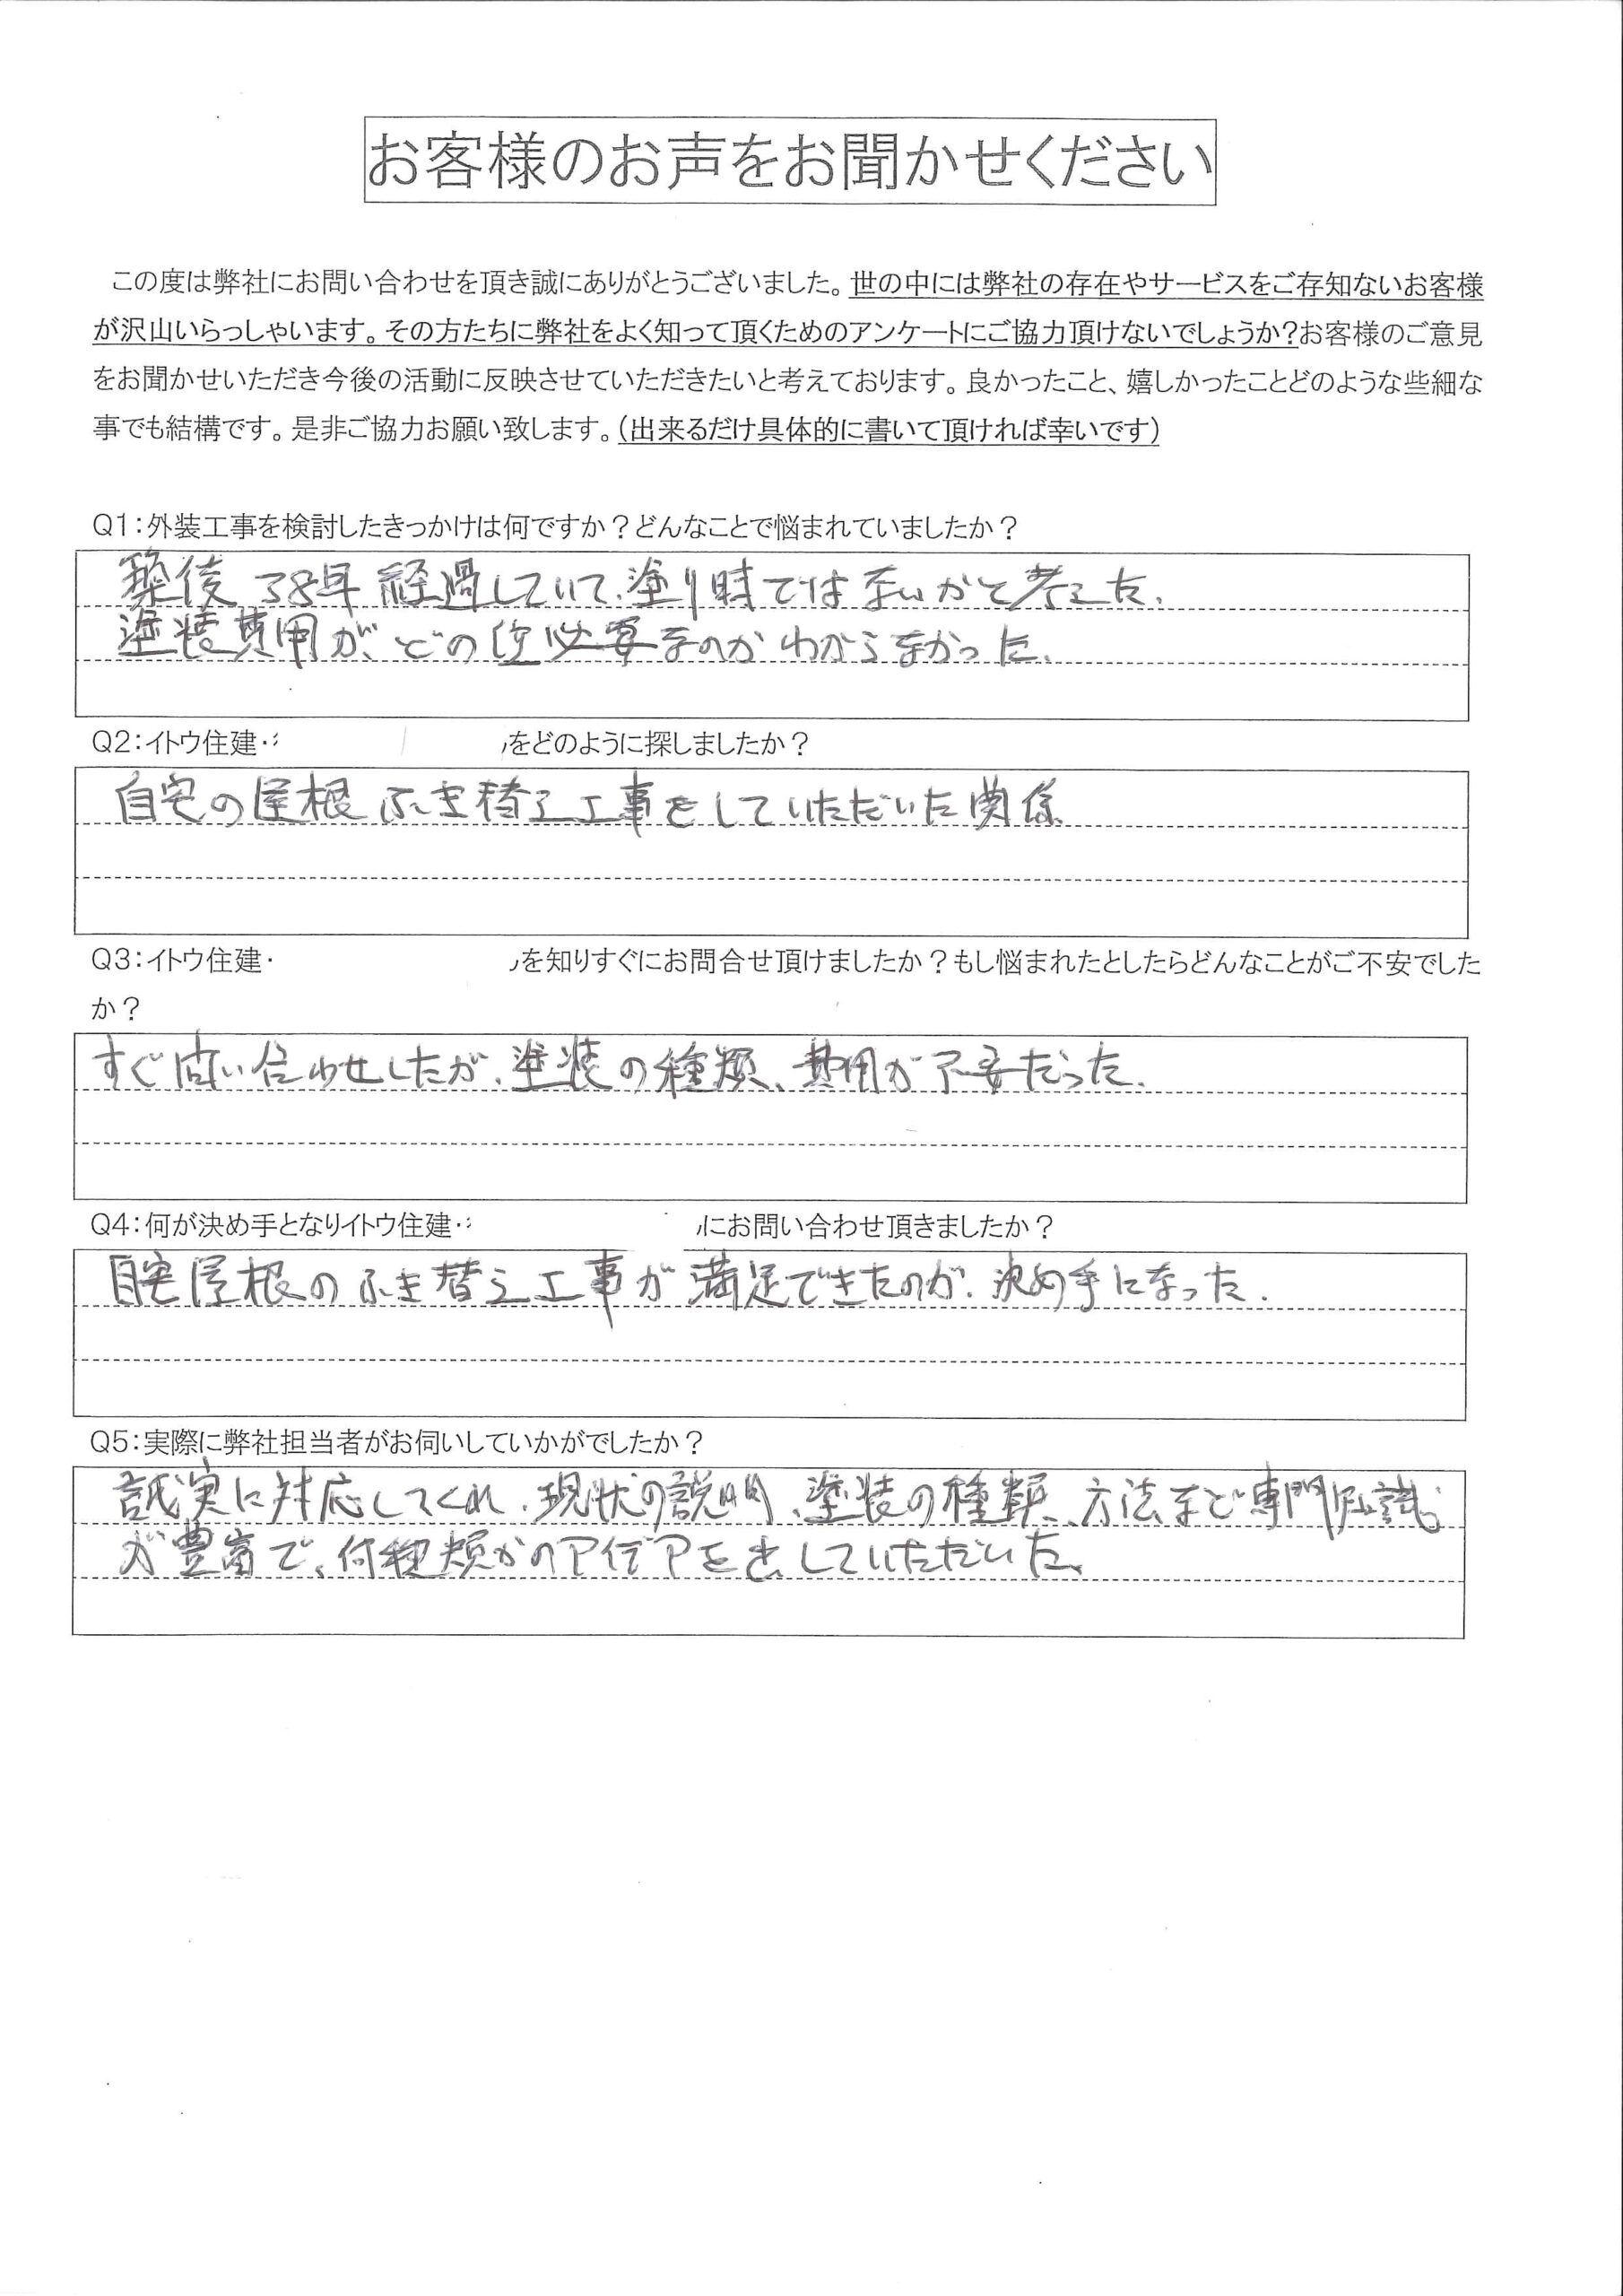 お客様のお声をお聞かせください
この度は弊社にお問い合わせを頂き誠にありがとうございました。世の中には弊社の存在やサービスをご存知ないお客様
が沢山いらっしゃいます。その方たちに弊社をよく知って頂くためのアンケートにご協力頂けないでしょうか?お客様のご意見
をお聞かせいただき今後の活動に反映させていただきたいと考えております。良かったこと、嬉しかったことどのような些細な
事でも結構です。是非ご協力お願い致します。(出来るだけ具体的に書いて頂ければ幸いです)
Q1:外装工事を検討したきっかけは何ですか?どんなことで悩まれていましたか?
築後38年経過していて、塗り時ではないかと考えた。
塗装費用が、どの位必要なのかわからなかった。
Q2:イトウ住建・ をどのように探しましたか?
自宅の屋根ふき替え工事をしていただいた関係
Q3:イトウ住建・ を知りすぐにお問合せ頂けましたか?もし悩まれたとしたらどんなことがご不安でした
か?
すぐ問い合わせしたが、塗装の種類、費用が不安だった。
Q4:何が決め手となりイトウ住建・ にお問い合わせ頂きましたか?
自宅屋根のふき替え工事が満足できたのが、決め手になった。
Q5:実際に弊社担当者がお伺いしていかがでしたか?
誠実に対応してくれ、現状の説明、塗装の種類、方法など専門知識
が豊富で、何種類かのアイデアを出していただいた。